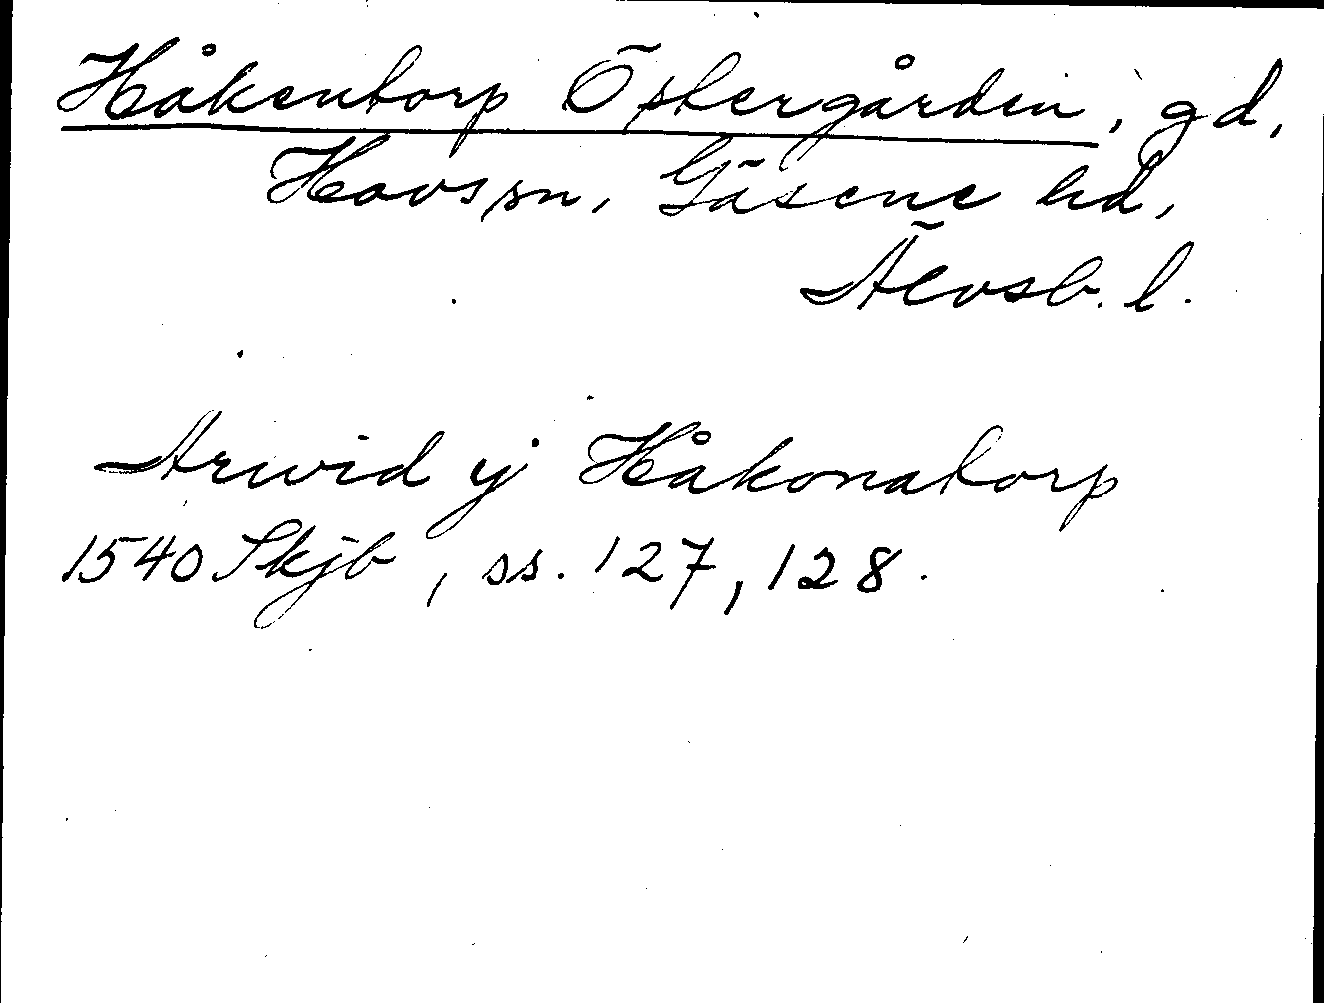 Håkentorp Östergården, gd,
Hovs sn, Gäsene hd,
Älvsb. l.
Arwid y Håkonatorp
1540 Skjb, ss. 127, 128.